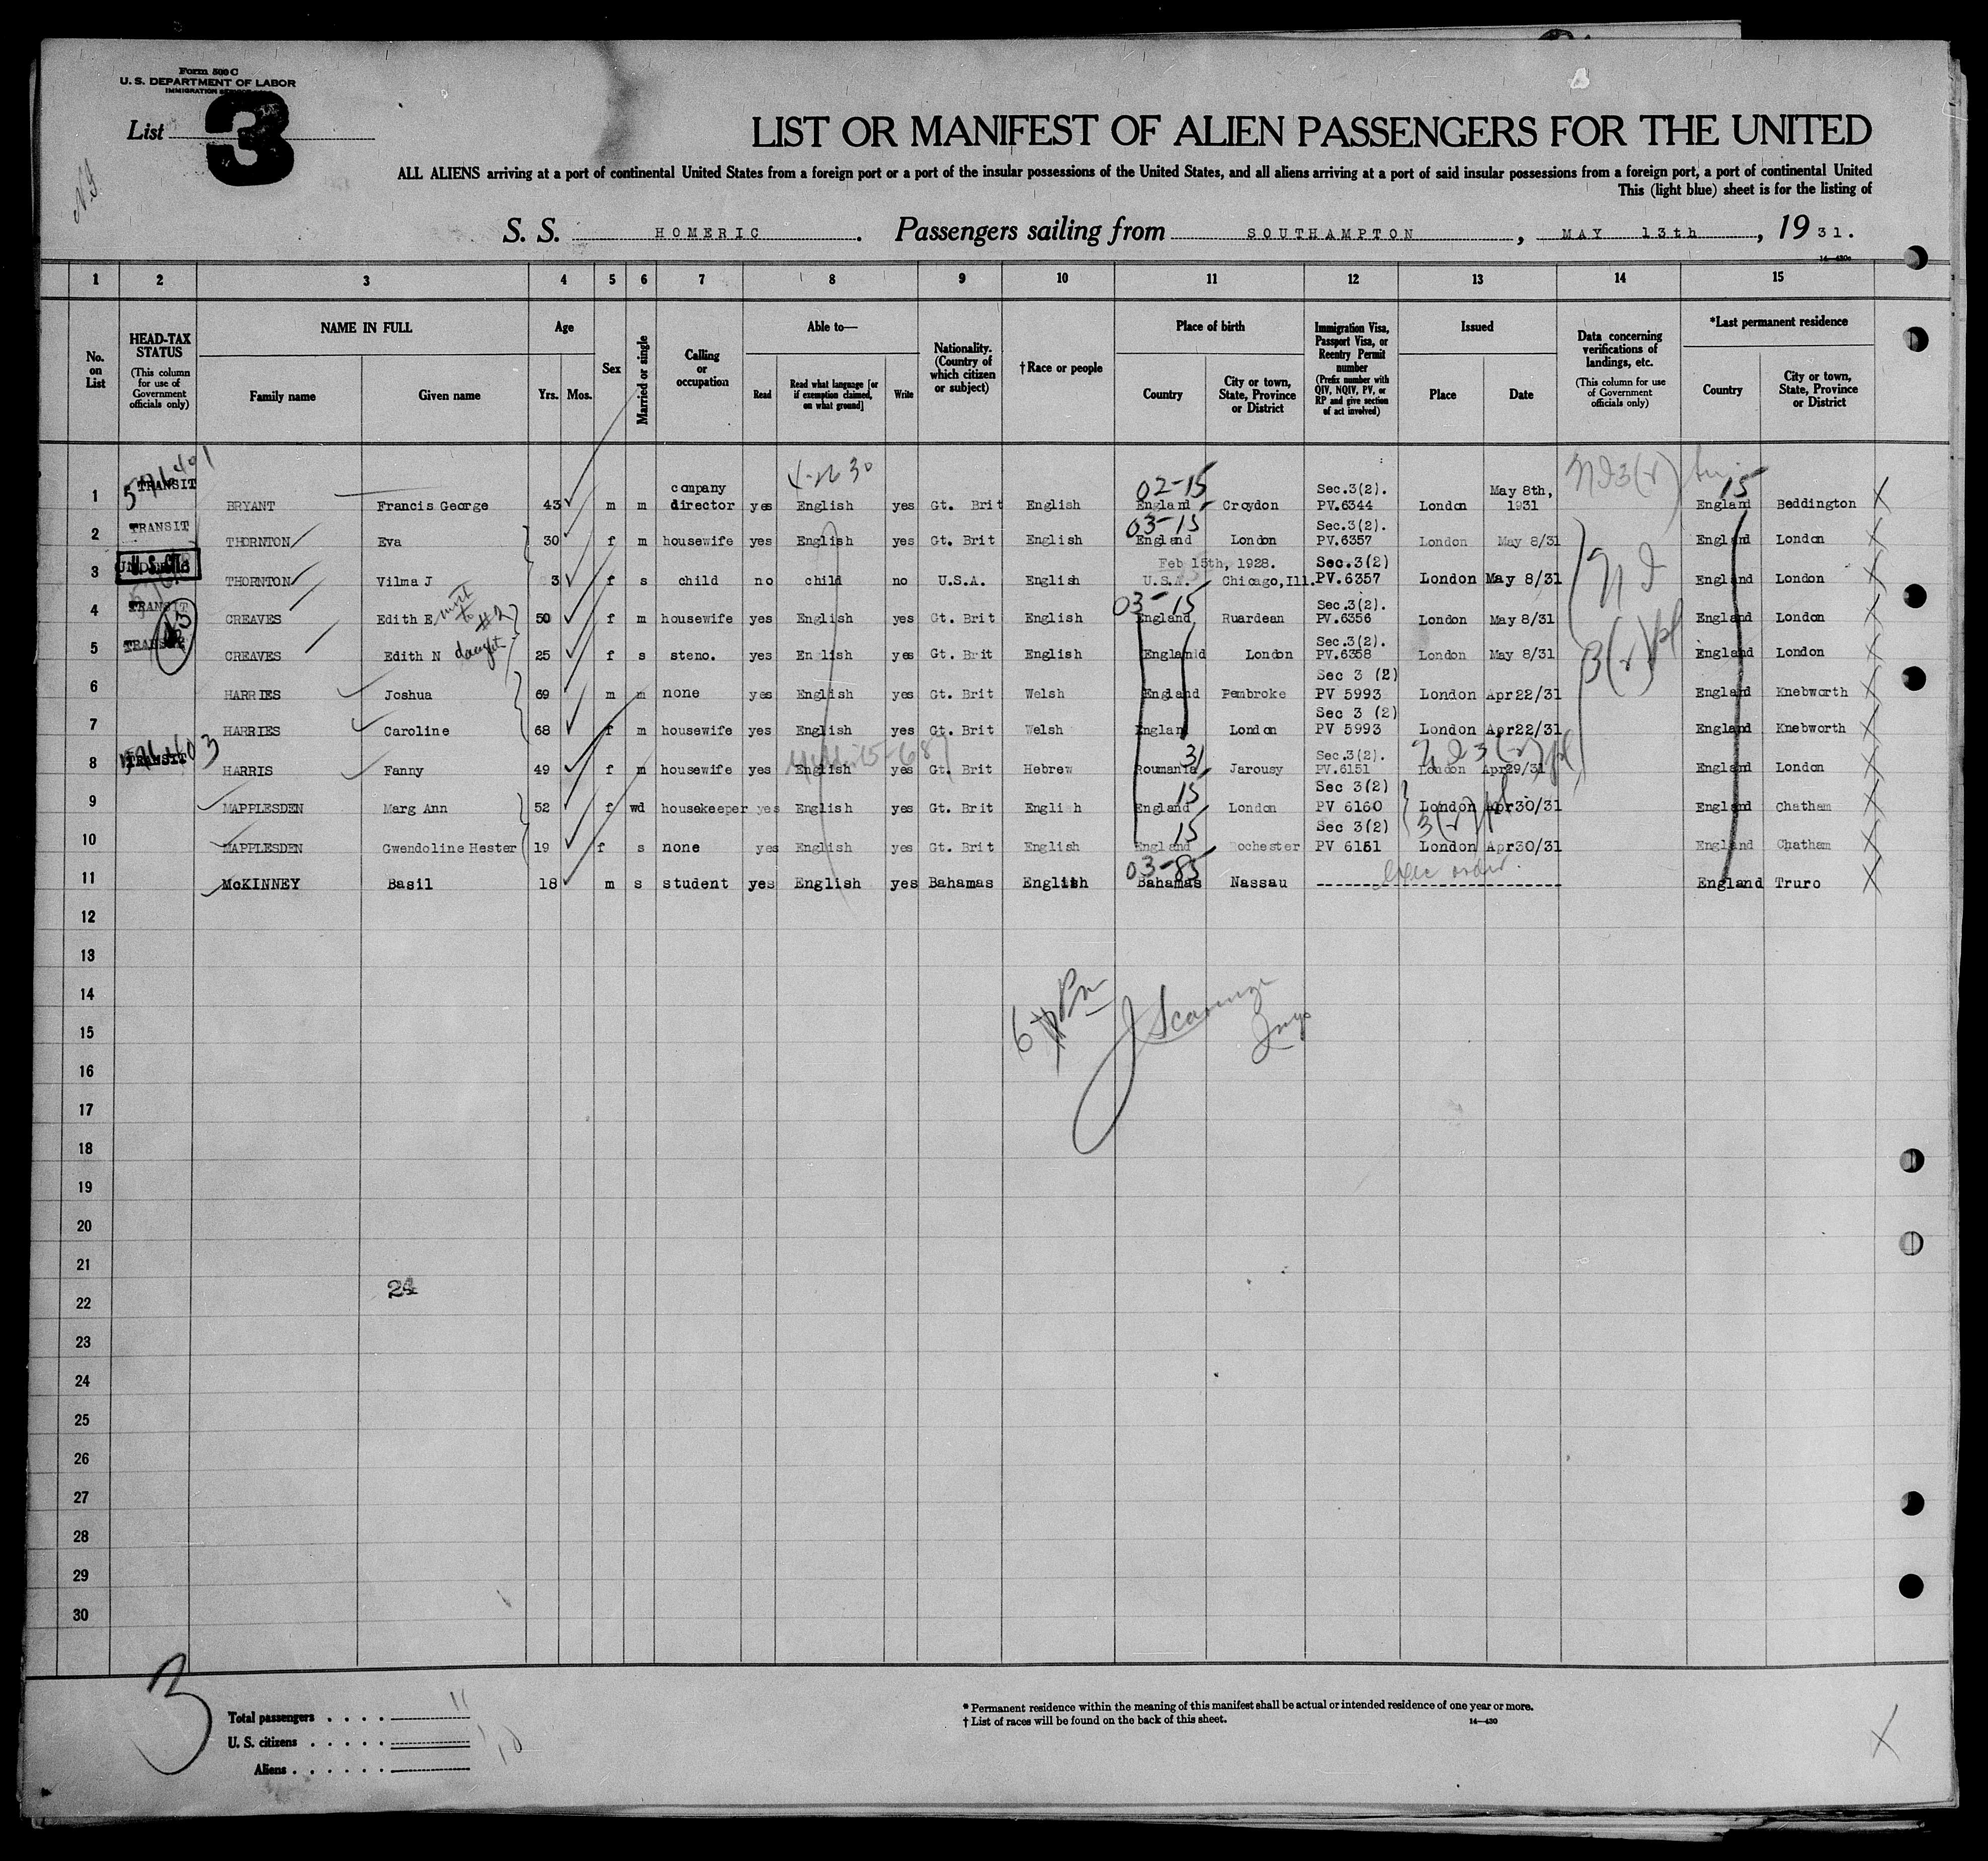 Form 500 C
U. S. DEPARTMENT OF LABOR
IMMIGRATION SERVICE
List 3
LIST OR MANIFEST OF ALIEN PASSENGERS FOR THE UNITED
ALL ALIENS arriving at a port of continental United States from a foreign port or a port of the insular possessions of the United States, and all aliens arriving at a port of said insular possessions from a foreign port, a port of continental United
This (light blue) sheet is for the listing of
S. S. HOMERIC. Passengers sailing from SOUTHAMPTON, MAY 13th, 1931.
14—430c
1 2 3 4 5 6 7 8 9 10 11 12 13 14 15
No. on List
HEAD-TAX STATUS (This column for use of Government officials only)
NAME IN FULL
Family name
Given name
Age
Yrs. Mos.
Sex
Married or single
Calling or occupation
Able to—
Read
Read what language [or if exemption claimed, on what ground]
Write
Nationality. (Country of which citizen or subject)
†Race or people
Place of birth
Country
City or town, State, Province or District
Immigration Visa, Passport Visa, or Reentry Permit number (Prefix number with QIV, NQIV, PV, or RP and give section of act involved)
Issued
Place
Date
Data concerning verifications of landings, etc. (This column for use of Government officials only)
*Last permanent residence
Country
City or town, State, Province or District
company 02-15 Sec.3(2). May 8th, 15
1 TRANSIT BRYANT Francis George 43 m m director yes English yes Gt. Brit English England Croydon PV.6344 London 1931 England Beddington X
03-15 Sec.3(2).
2 TRANSIT THORNTON Eva 30 f m housewife yes English yes Gt. Brit English England London PV.6357 London May 8/31 England London X
Feb 15th, 1928. Sec.3(2)
3 THORNTON Vilma J 3 f s child no child no U.S.A. English U.S.A. Chicago,Ill. PV.6357 London May 8/31 England London X
03-15 Sec.3(2).
4 TRANSIT CREAVES Edith E #2 50 f m housewife yes English yes Gt. Brit English England Ruardean PV.6356 London May 8/31 England London X
Sec.3(2).
5 TRANSIT CREAVES Edith N daught 25 f s steno. yes En lish yes Gt. Brit English England London PV.6358 London May 8/31 England London X
Sec 3 (2)
6 HARRIES Joshua 69 m m none yes English yes Gt. Brit Welsh England Pembroke PV 5993 London Apr22/31 England Knebworth X
Sec 3 (2)
7 HARRIES Caroline 68 f m housewife yes English yes Gt. Brit Welsh England London PV 5993 London Apr22/31 England Knebworth X
31 Sec.3(2).
8 TRANSIT HARRIS Fanny 49 f m housewife yes English yes Gt. Brit Hebrew Roumania Jarousy PV.6151 London Apr29/31 England London X
15 Sec 3(2)
9 MAPPLESDEN Marg Ann 52 f wd housekeeper yes English yes Gt. Brit Engli h England London PV 6160 London Apr30/31 England Chatham X
15 Sec 3(2)
10 MAPPLESDEN Gwendoline Hester 19 f s none yes English yes Gt. Brit English England Rochester PV 6161 London Apr30/31 England Chatham X
03-85
11 McKINNEY Basil 18 m s student yes English yes Bahamas English Bahamas Nassau Exec order. England Truro X
12
13
14
15
16
17
18
19
20
21
24
22
23
24
25
26
27
28
29
30
3
Total passengers . . . . 11
U. S. citizens . . . . .
Aliens . . . . . . 10
* Permanent residence within the meaning of this manifest shall be actual or intended residence of one year or more.
† List of races will be found on the back of this sheet.
14—430
X